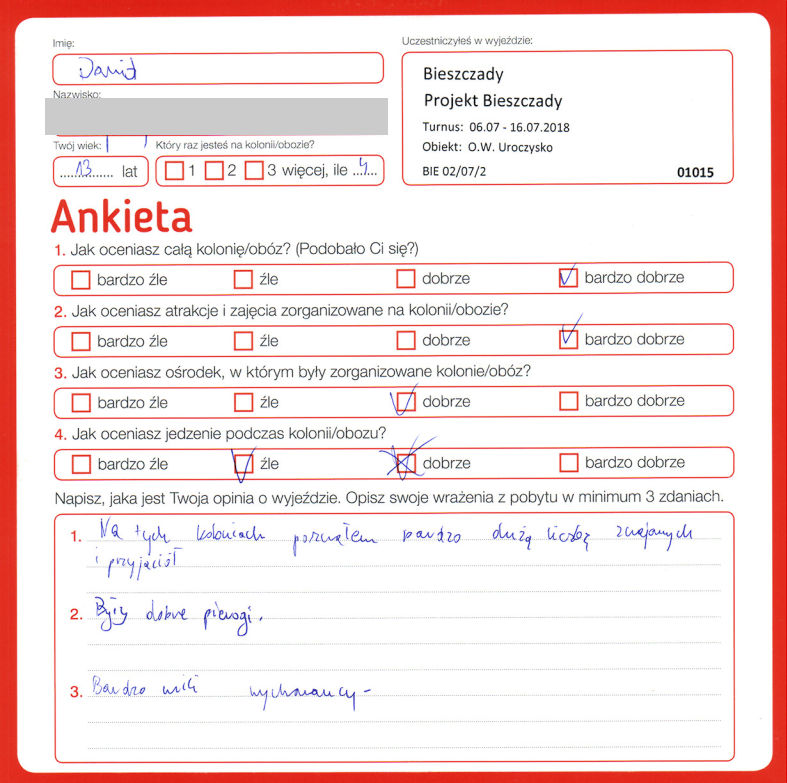 Imię:
Dawid
Uczestniczyłeś w wyjeździe:
Bieszczady
Projekt Bieszczady
Turnus: 06.07 - 16.07.2018
Obiekt: O.W. Uroczysko
BIE 02/07/2
01015
Nazwisko:
Twój wiek:
13 lat
Który raz jesteś na kolonii/obozie?
1 2 3 więcej, ile 4
Ankieta
1. Jak oceniasz całą kolonię/obóz? (Podobało Ci się?)
bardzo źle źle dobrze bardzo dobrze
2. Jak oceniasz atrakcje i zajęcia zorganizowane na kolonii/obozie?
bardzo źle źle dobrze bardzo dobrze
3. Jak oceniasz ośrodek, w którym były zorganizowane kolonie/obóz?
bardzo źle źle dobrze bardzo dobrze
4. Jak oceniasz jedzenie podczas kolonii/obozu?
bardzo źle źle dobrze bardzo dobrze
Napisz, jaka jest Twoja opinia o wyjeździe. Opisz swoje wrażenia z pobytu w minimum 3 zdaniach.
1. Na tych koloniach poznałem bardzo dużą liczbę znajomych
i przyjaciół
2. Były dobre pierogi.
3. Bardzo mili wychowawcy-